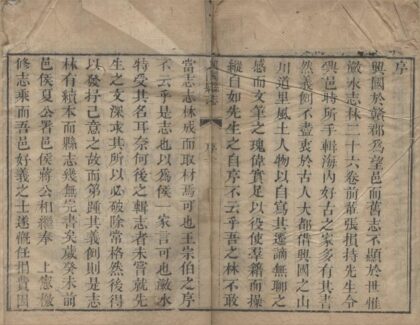 序
興國於贛郡為望邑而舊志不顯於世惟
瀲水志林二十六卷前輩張損持先生令
興邑時所手輯海內好古之家多有其書
然義例不盡衷於古人大都借興國之山
川道里風土人物以自寫其遷謫無聊之
感而文筆之瑰偉實足以役使羣籍而操
縱自如先生之自序不云乎吾之林不敢
興國縣志
序
當志志林成而取材焉可也王宗伯之序
不云乎是志也以為侯一家言可也瀲水
特受其名耳奈何後之輯志者未嘗就先
生之文深求其所以必破除常格然後得
以發抒己意之故而第踵其義例則是志
林有續本而縣志幾無完書矣歲癸未前
邑侯夏公署邑侯蔣公相繼奉 上憲檄
修志乘而吾邑好義之士遂慨任捐費因